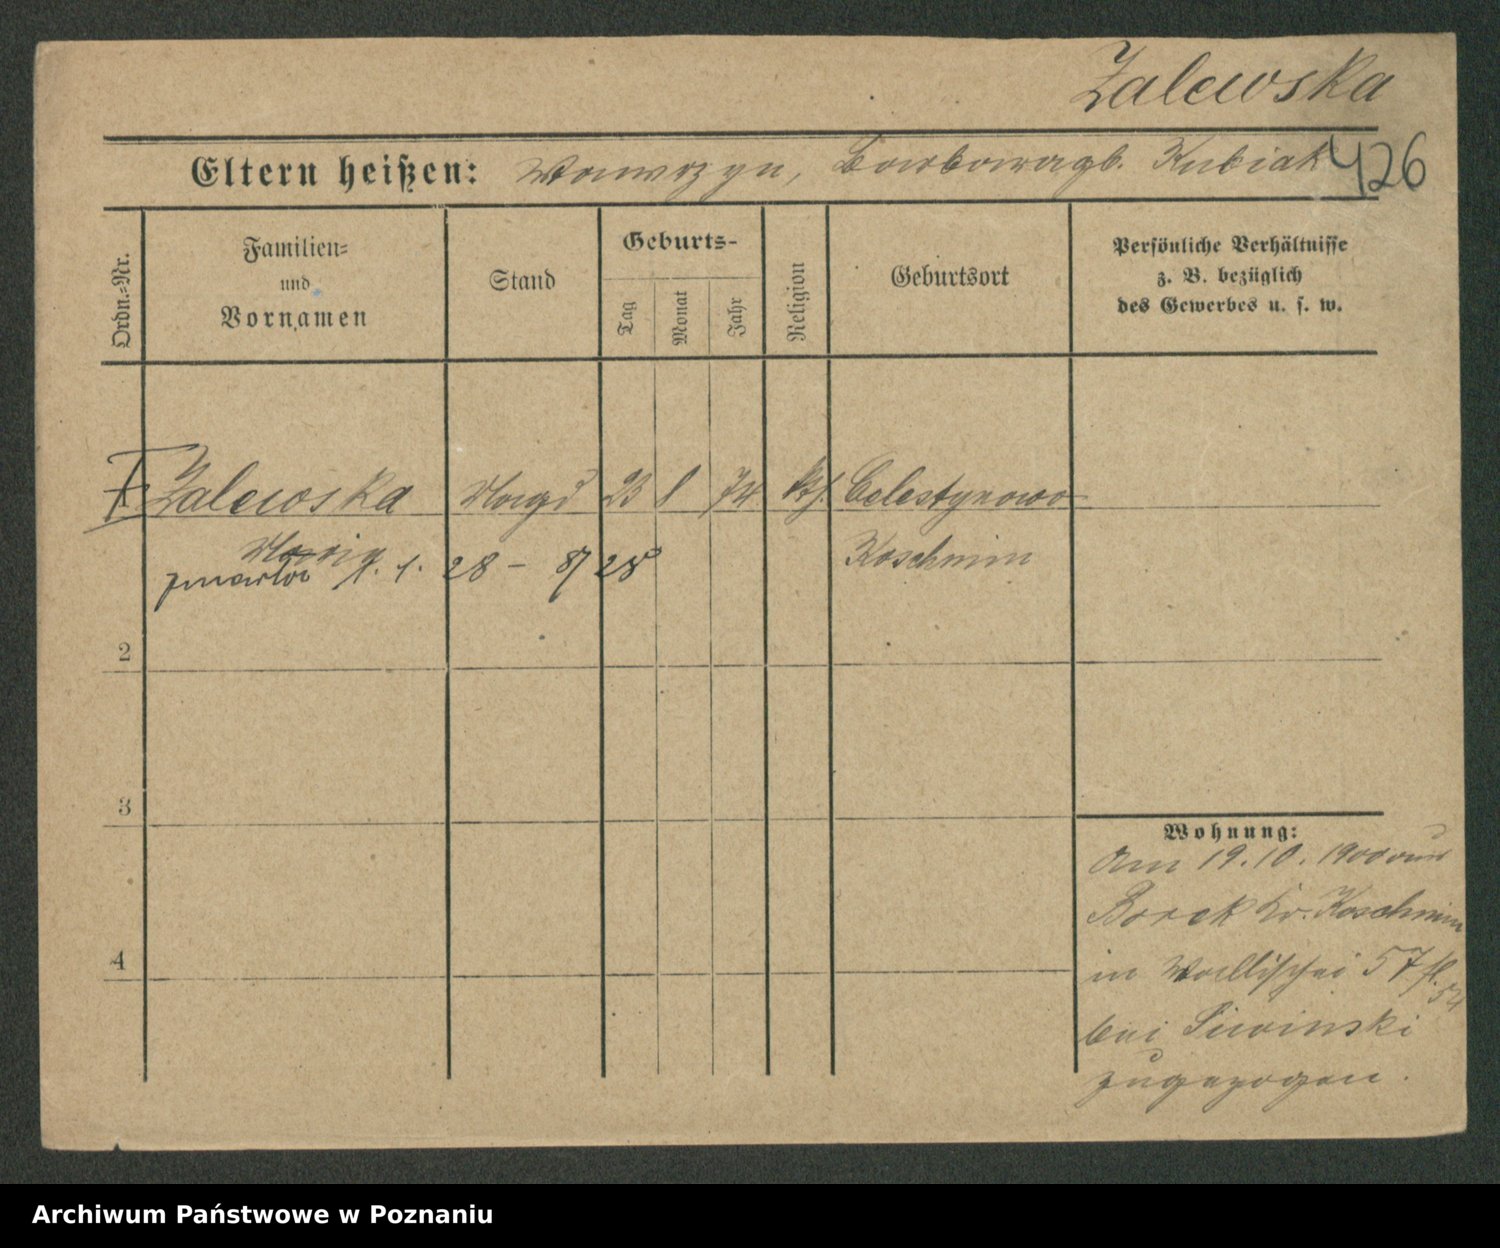 Zalewska
Eltern heißen: Wawrzyn, Barbara gb. Kubiak
426
Ordn.-Nr.
Familien-
und
Vornamen
Stand
Geburts-
Tag
Monat
Jahr
Religion
Geburtsort
Persönliche Verhältnisse
z. B. bezüglich
des Gewerbes u. s. w.
Zalewska Magd 23 8 74 kth. Celestynowo
Koschmin
zmarła 28 - 8/28
2
3
4
Wohnung:
Am 19.10. 1900 von
Borek Kr. Koschmin
in Wallischei 57
bei Siwinski
zugezogen.
Archiwum Państwowe w Poznaniu